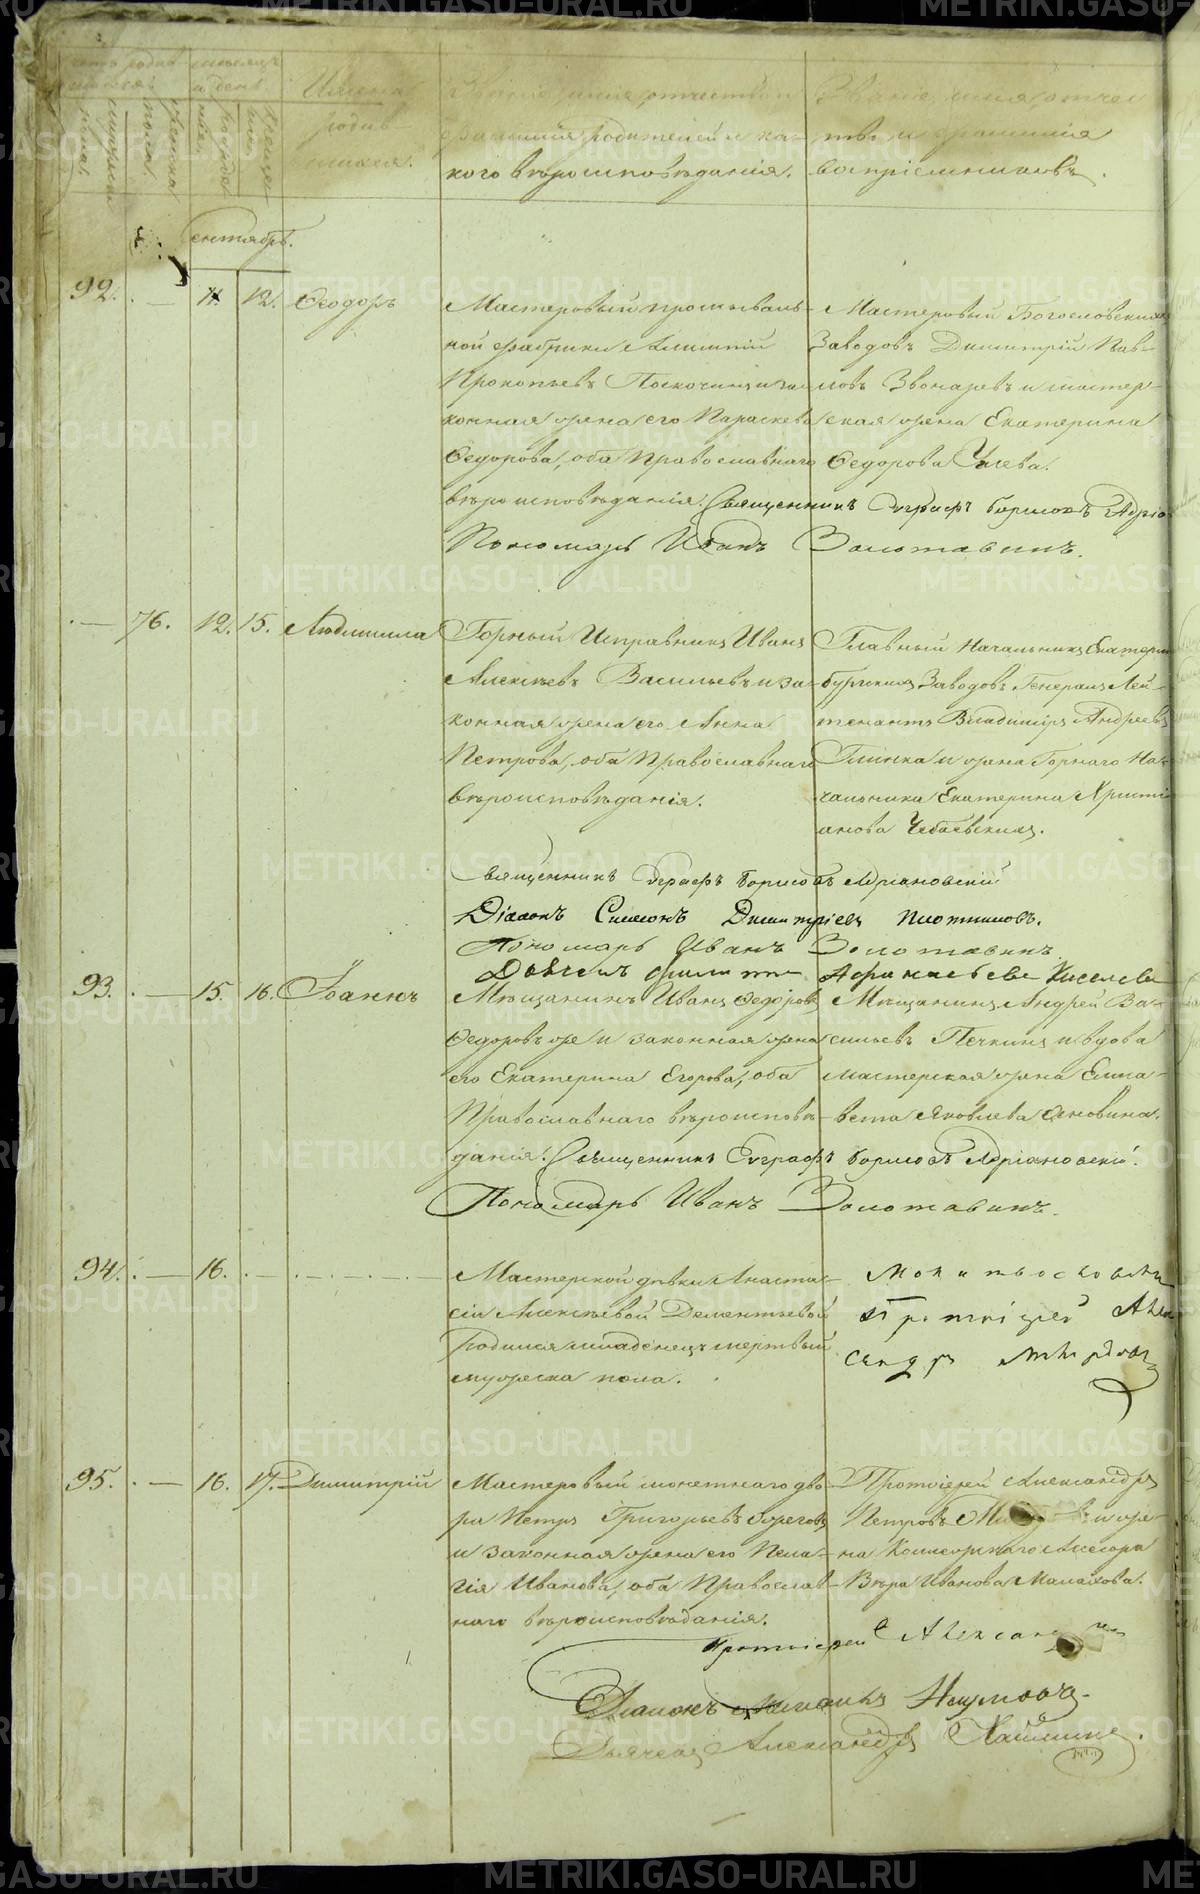 Имена
родив-
шихся.
Званіе, имя, отчество и
фамилія родителей и ка-
кого вѣроисповѣданія.
Званіе, имя, отчес
тво и фамилія
воспріемниковъ.
Сентябрь.
92. 11. 12. Ѳеодоръ
Мастеровый промываль-
ной фабрики
Прокопьевъ и за-
конная жена его Параскева
Ѳедорова, оба Православнаго
вѣроисповѣданія.
Мастеровый Богословскихъ
Заводовъ Димитрій Пав-
ловъ Звонаревъ и мастер-
ская жена Екатерина
Ѳедорова
Священникъ Евграфъ Борисовъ
Пономарь Иванъ Золотавинъ.
76. 12. 15. Людмила
Горный Исправникъ Иванъ
Алексѣевъ Васильевъ и за-
конная жена его Анна
Петрова, оба Православнаго
вѣроисповѣданія.
Главный Начальникъ Екатерин
бургскихъ Заводовъ Генералъ Лей-
тенантъ Владиміръ Андреевъ
Глинка и жена Горнаго На-
чальника Екатерина Христі
анова
Священникъ Евграфъ Борисовъ Адріановскій
Діаконъ Симеонъ Димитріевъ Плотниковъ.
Пономарь Иванъ Золотавинъ
Дьячекъ Филиппъ Киселевъ
93. 15. 16. Іоаннъ
Мѣщанинъ Иванъ Ѳедоровъ
Ѳедоровъ же и законная жена
его Екатерина Егорова, оба
Православнаго вѣроисповѣ-
данія.
Мѣщанинъ Андрей Ва-
сильевъ Печкинъ и вдова
мастерская жена Елиса-
вета Яковлева
Священникъ Евграфъ Борисовъ Адріановскій.
Пономарь Иванъ Золотавинъ.
94. 16.
Мастерской дѣвки Анаста-
сіи Алексѣевой Дементьевой
родился младенецъ мертвый
мужеска пола.
Молитвословилъ
Протоіерей Алек
сандръ
95. 16. 17. Димитрій
Мастеровый монетнаго дво-
ра Петръ Григорьевъ
и законная жена его Пела-
гія Иванова, оба Православ-
наго вѣроисповѣданія.
Протоіерей Александръ
Петровъ и же-
на Коллежскаго Ассесора
Вѣра Иванова Малахова.
Протоіерей
Діаконъ Наумовъ
Дьячекъ Александръ
METRIKI.GASO-URAL.RU